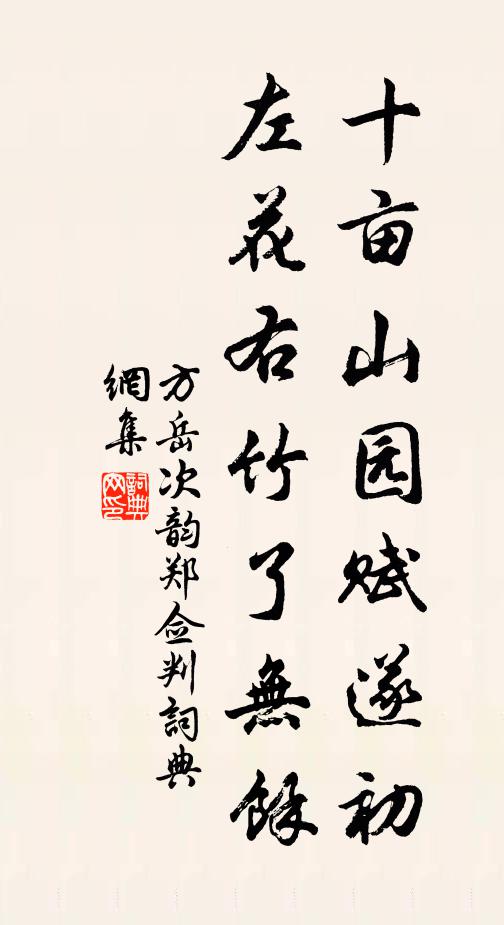 十亩山园赋遂初
左花右竹了無餘
方岳次韵郑佥判詞典
網集
詞典网印